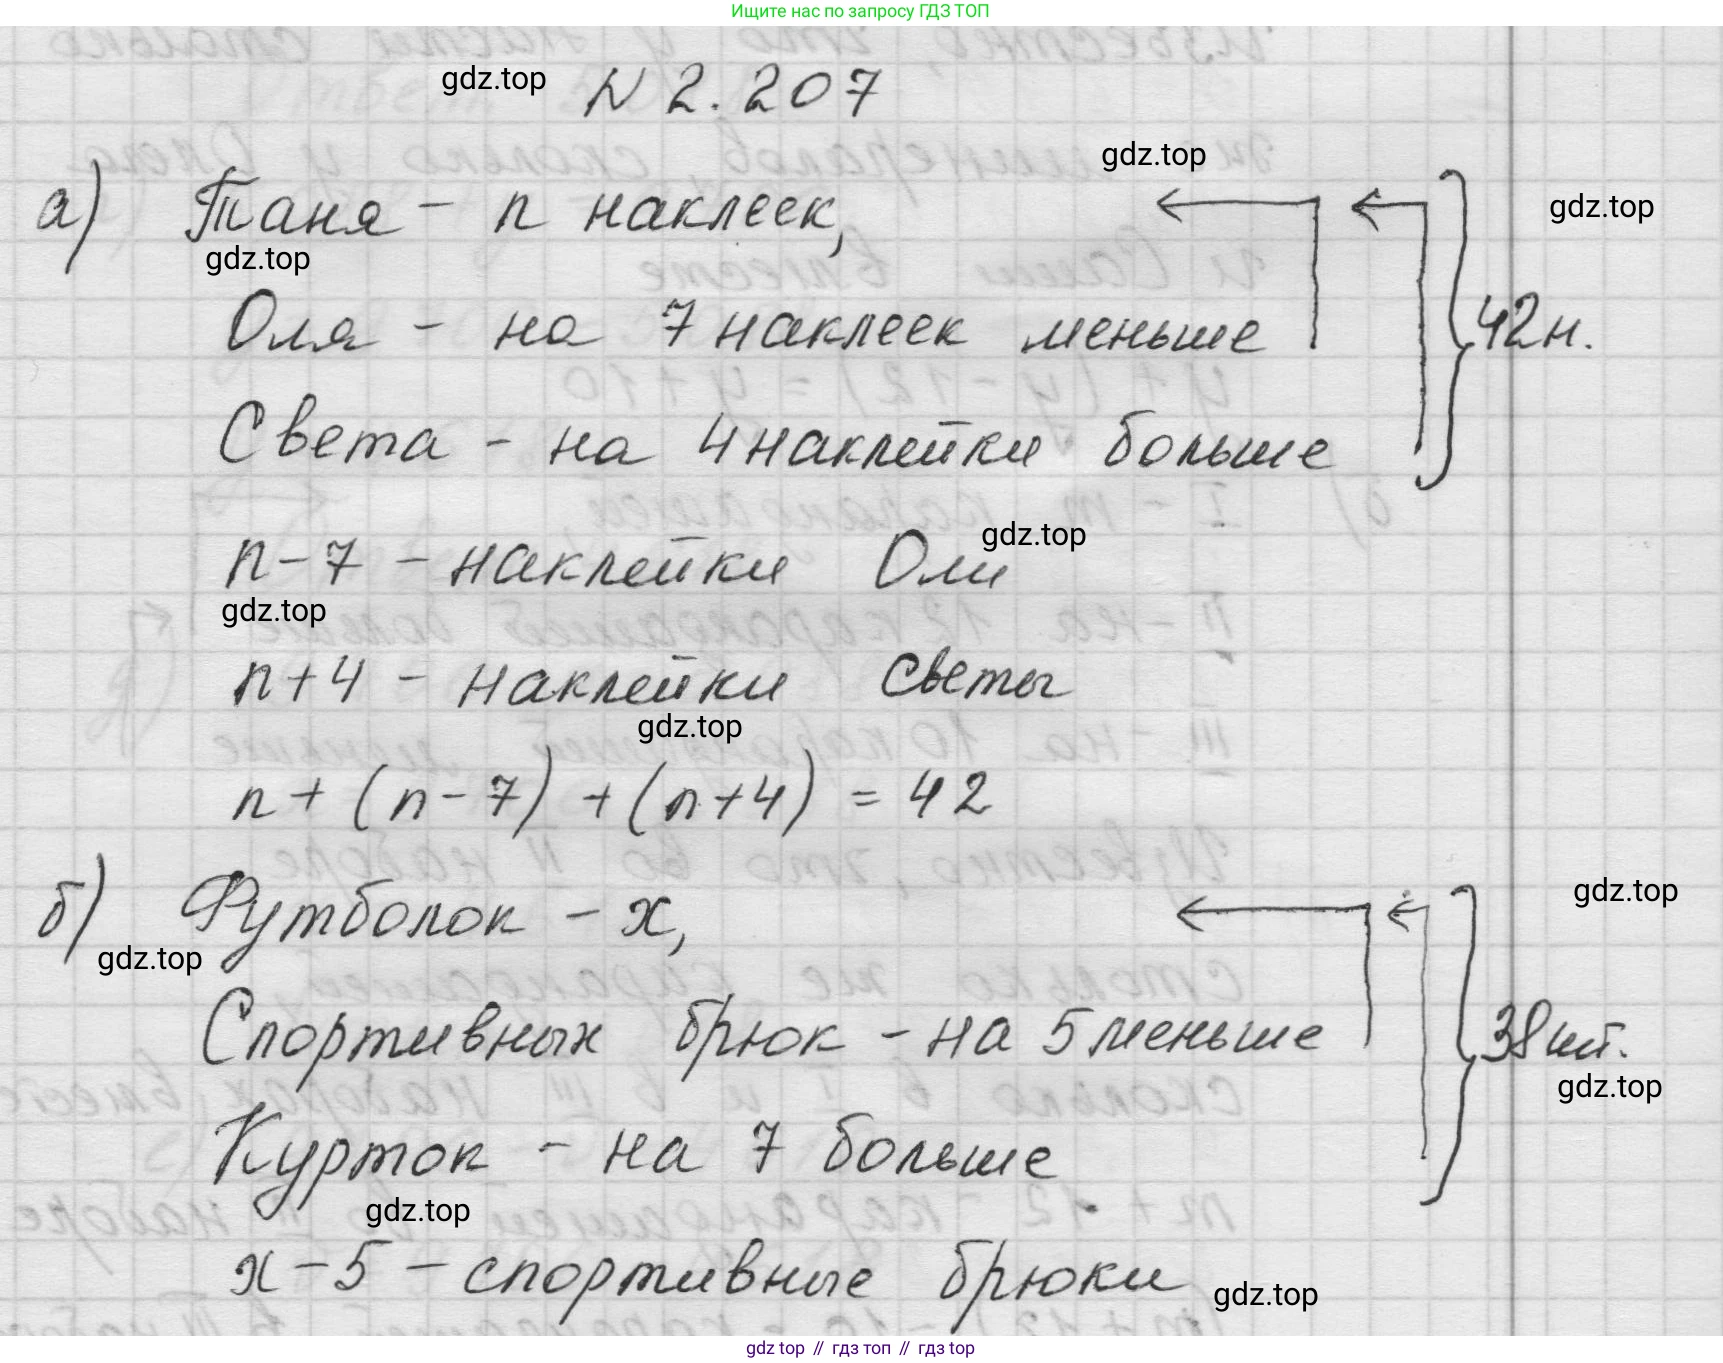 Ищите нас по запросу ГДЗ ТОП
gdz.top
N 2.207
gdz.top
а) Таня - n наклеек,
gdz.top
gdz.top
Оля - на 7 наклеек меньше
42 н.
Света - на 4 наклейки больше
gdz.top
n-7 - наклейки Оли
gdz.top
n+4 - наклейки Светы
gdz.top
n + (n-7) + (n+4) = 42
gdz.top
б) Футболок - x,
gdz.top
Спортивных брюк - на 5 меньше
38 шт.
gdz.top
Курток - на 7 больше
gdz.top
x-5 - спортивные брюки
gdz.top
gdz top // гдз топ // гдз top